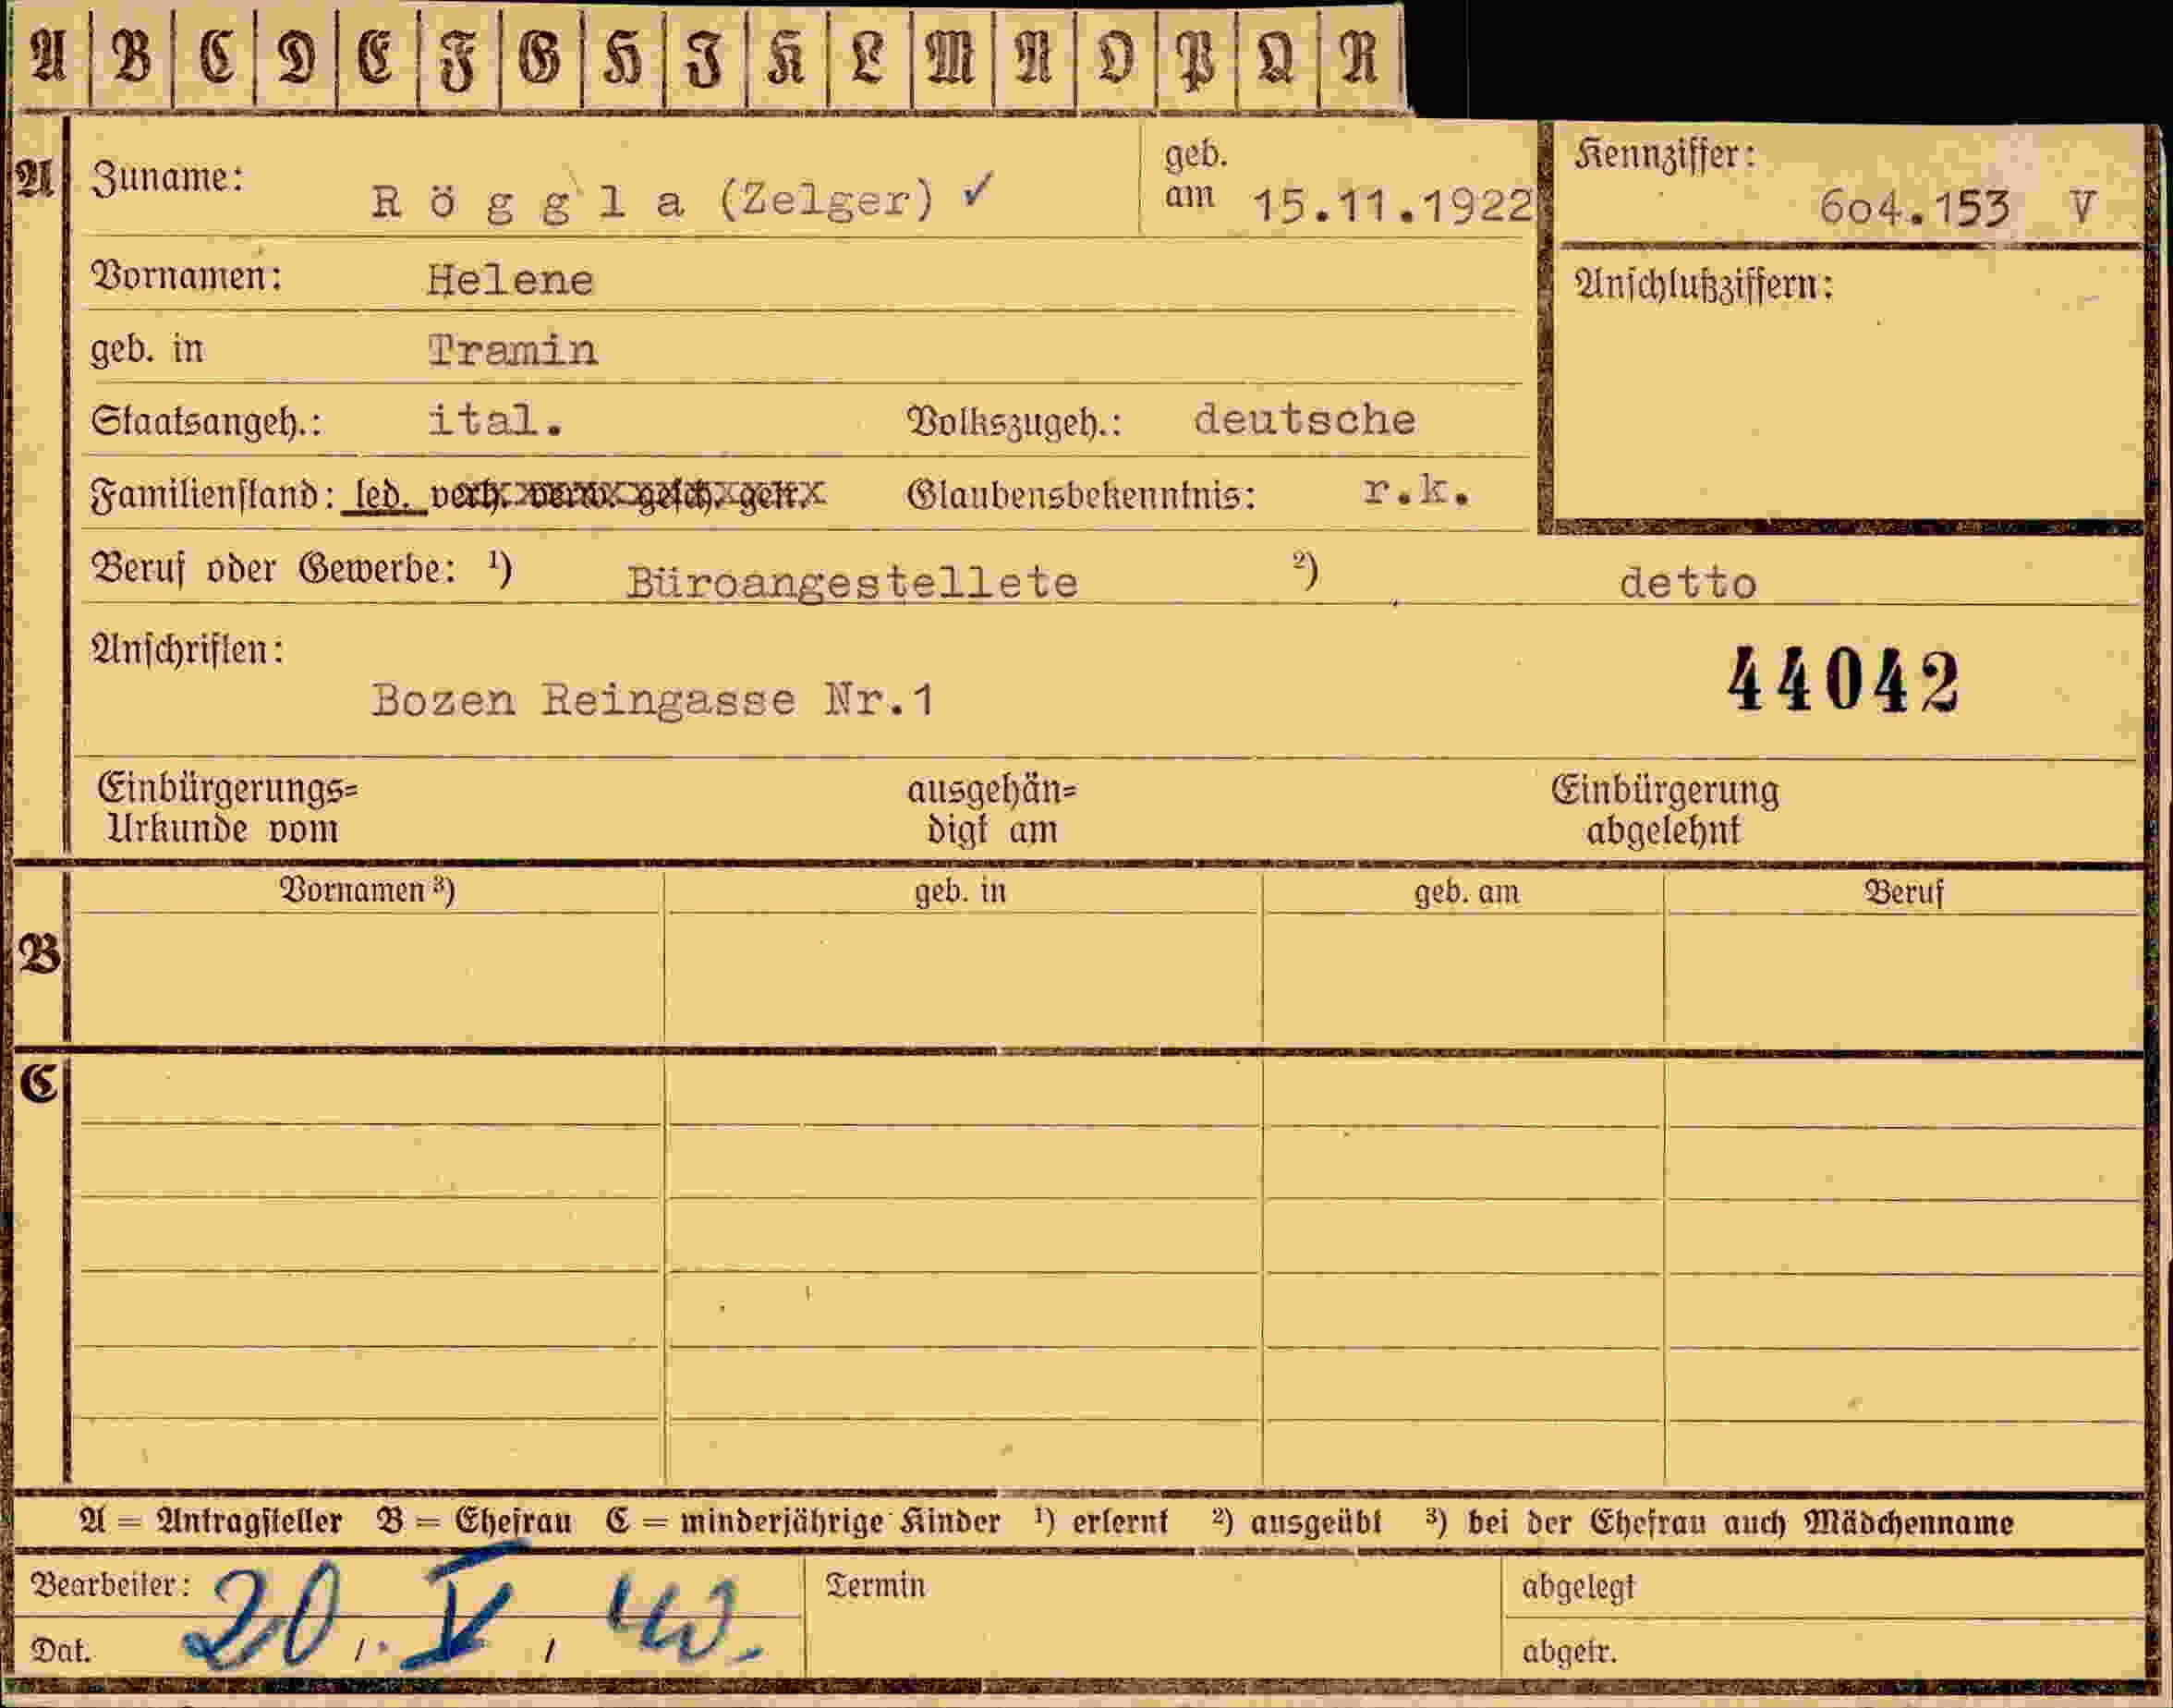 A B C D E F G H I K L M N O P Q R
A Zuname: Röggla (Zelger) ✓ geb. am 15.11.1922 Kennziffer: 604.153 V
Vornamen: Helene Anschlußziffern:
geb. in Tramin
Staatsangeh.: ital. Volkszugeh.: deutsche
Familienstand: led. verh. verw. gesch. getr. Glaubensbekenntnis: r.k.
Beruf oder Gewerbe: ¹) Büroangestellete ²) detto
Anschriften:
Bozen Reingasse Nr.1 44042
Einbürgerungs= ausgehän= Einbürgerung
Urkunde vom digt am abgelehnt
Vornamen ³) geb. in geb. am Beruf
B
C
A = Antragsteller B = Ehefrau C = minderjährige Kinder ¹) erlernt ²) ausgeübt ³) bei der Ehefrau auch Mädchenname
Bearbeiter: Termin abgelegt
Dat. 20. / V / 40. abgetr.